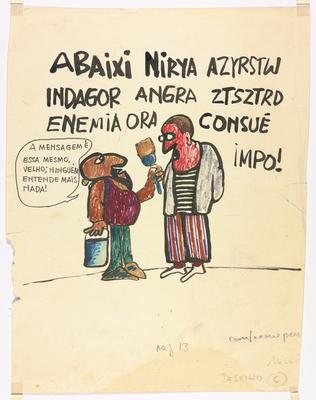 ABAIXI NIRYA AZYRSTW
INDAGOR ANGRA ZTSZTRD
ENEMIA ORA CONSUÊ
IMPO!
A MENSAGEM É
ESSA MESMO,
VELHO; NINGUÉM
ENTENDE MAIS
NADA!
13
DESENHO ©